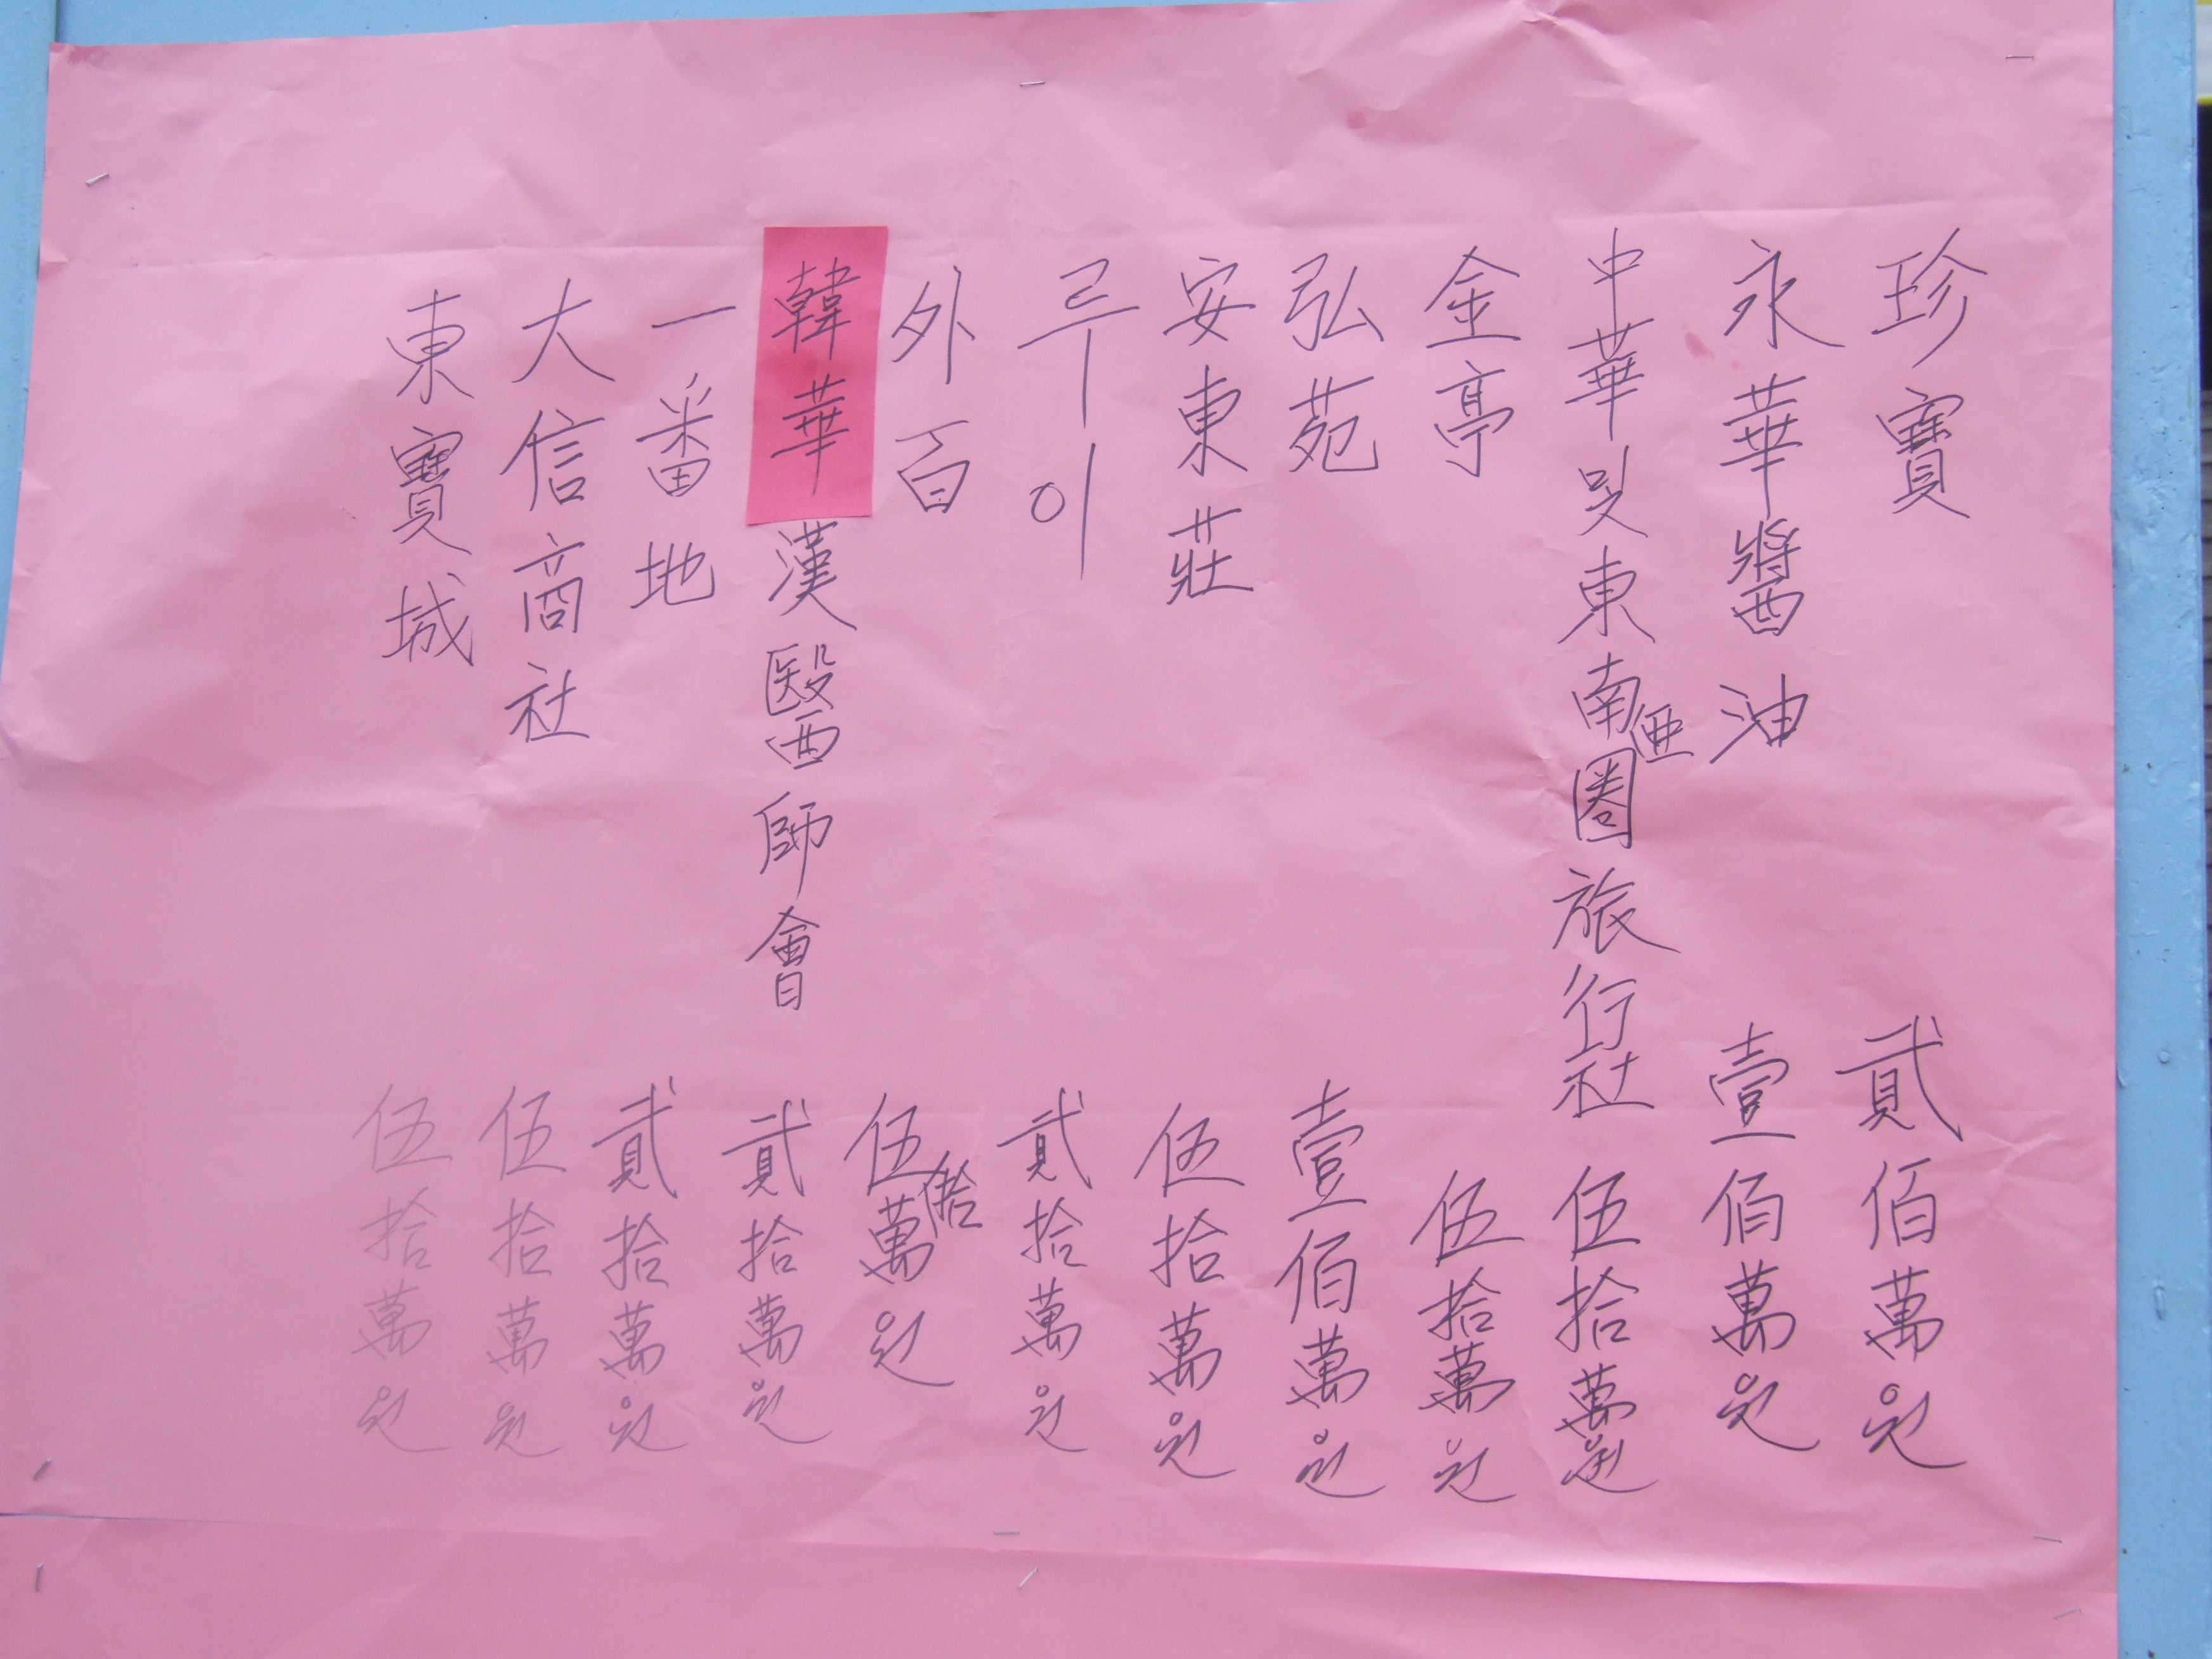 珍寶 貳佰萬원
永華醬油 壹佰萬원
中華및東南亜圈旅行社 伍拾萬원
金亭 伍拾萬원
弘苑 壹佰萬원
安東莊 伍拾萬원
루이 貳拾萬원
外百 伍拾萬원
韓華漢醫師會 貳拾萬원
一番地 貳拾萬원
大信商社 伍拾萬원
東寶城 伍拾萬원